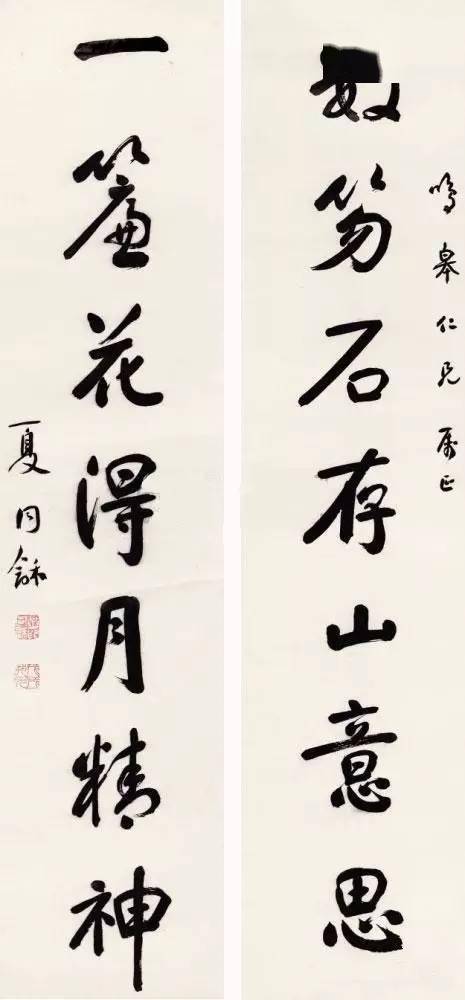 鳴皋仁兄属正
笏石存山意思
一簾花得月精神
夏同龢